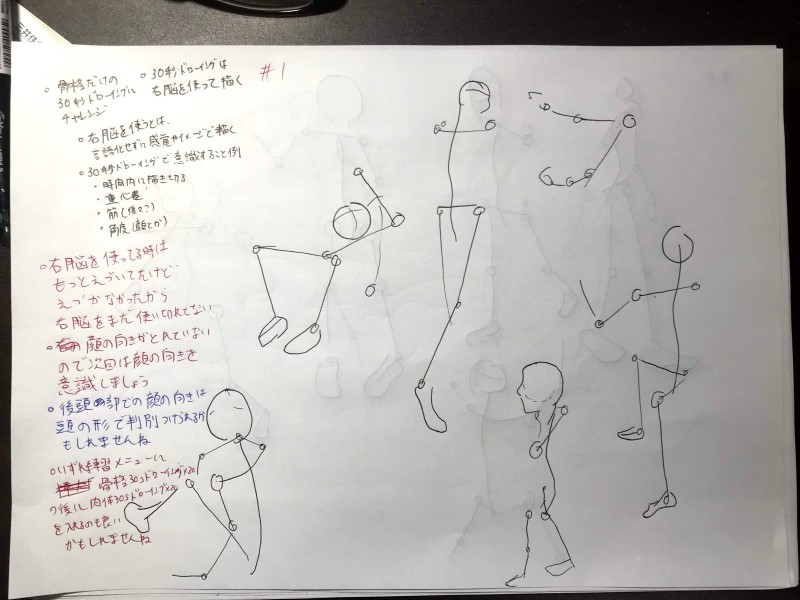 #1
○ 骨格だけの
30秒ドローイングに
チャレンジ
○ 30秒ドローイングは
右脳を使って描く
○ 右脳を使うとは、
言語化せずに感覚やイメージで描く
○ 30秒ドローイングで意識すること例
・時間内に描き切る
・重心
・筋(長さ)
・角度(顔とか)
○ 右脳を使ってる時は
もっとえづいてたけど
えづかなかったから
右脳をまだ使い切れてない
○ 顔の向きがとれていない
ので次回は顔の向きを
意識しましょう
○ 後頭部での顔の向きは
頭の形で判別つけられるか
もしれませんね
○ いずれ練習メニューに
骨格30sドローイング×20
の後に肉体30sドローイング×20
を入れるのも良い
かもしれませんね
三井住